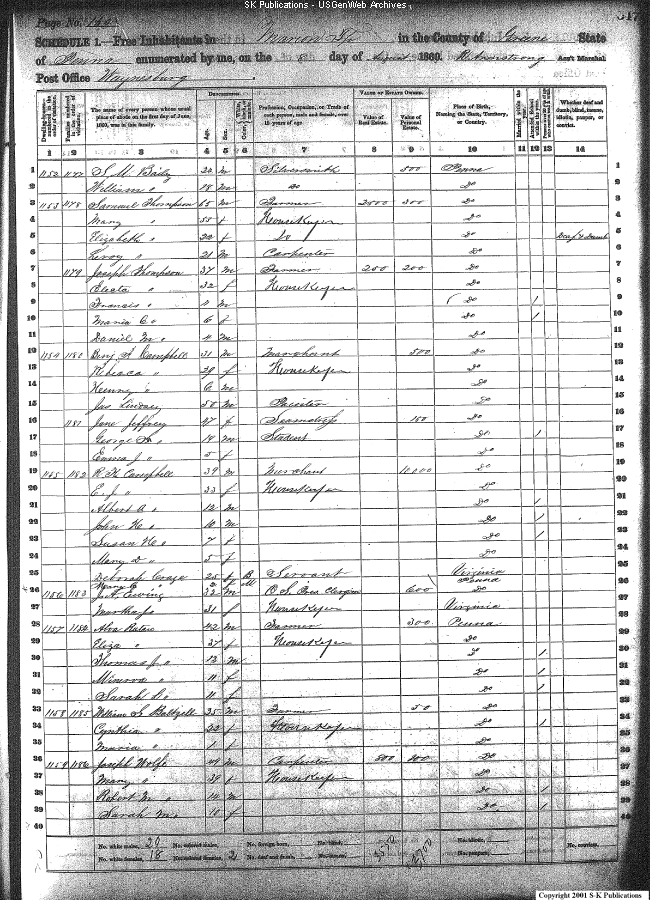 SK Publications - USGenWeb Archives
Page No.
SCHEDULE 1.—Free Inhabitants in Marion Tp in the County of Greene State
of Penna enumerated by me, on the day of August 1860. Ass't Marshal
Post Office Waynesburg
DESCRIPTION. VALUE OF ESTATE OWNED.
The name of every person whose usual place of abode on the first day of June, 1860, was in this family.
Age. Sex.
Profession, Occupation, or Trade of each person, male and female, over 15 years of age.
Value of Real Estate. Value of Personal Estate.
Place of Birth, Naming the State, Territory, or Country.
Whether deaf and dumb, blind, insane, idiotic, pauper, or convict.
1 2 3 4 5 6 7 8 9 10 11 12 13 14
1 1152 1177 S. M. Baily m Silversmith 500 Penna 1
2 William " 18 m Do Do 2
3 1153 1178 Samuel Thompson 65 m Farmer 2500 300 Do 3
4 Mary " 55 f HouseKeeper Do 4
5 Elizabeth " 22 f Do Do Deaf & Dumb 5
6 Leroy " 21 m Carpenter Do 6
7 1179 Joseph Thompson 37 m Farmer 200 200 Do 7
8 Electa " 32 f HouseKeeper Do 8
9 Francis " 11 m Do / 9
10 Maria C. " 6 f Do / 10
11 Daniel M. " 4 m Do 11
12 1154 1180 Benj. F. Campbell 31 m Merchant 500 Do 12
13 Rebecca " 29 f HouseKeeper Do 13
14 Henry " 6 m Do 14
15 Jas Lindsey 50 m Painter Do 15
16 1181 Jane Jeffrey 47 f Seamstress 150 Do 16
17 George " 18 m Student Do / 17
18 Emma J " 5 f Do 18
19 1155 1182 R. H. Campbell 39 m Merchant 10000 Do 19
20 E. J. " 33 f HouseKeeper Do 20
21 Albert A. " 12 m Do / 21
22 John H. " 10 m Do / 22
23 Susan H. " 7 f Do / 23
24 Mary D " 5 f Do 24
25 Deborah 25 f B Servant Virginia 25
Mary 2 f M Penna
26 1156 1183 J. A. Ewing 32 m O. S. Pres Clergyman 600 Do
27 f HouseKeeper Virginia
28 1157 1184 Alva 42 m Farmer 300 Penna
29 Eliza " 37 f HouseKeeper Do
30 Thomas J. " 13 m Do /
31 Minerva " 11 f Do /
32 Sarah " 11 f Do /
33 1158 1185 William S. Baltzell 35 m Farmer 50 Do
34 Cynthia " 32 f HouseKeeper Do /
35 Maria " 1 f Do
36 1159 1186 Joseph Wolfe 49 m Carpenter 500 Do
37 Mary " 39 f HouseKeeper Do
38 Robert M. " 14 m Do /
39 Sarah M. " 10 f Do /
40
No. white males, 20 No. colored males, No. foreign born, No. blind,
No. white females, 18 No. colored females, 2 No. deaf and dumb, No. insane, No. idiotic, No. paupers, No. convicts,
Copyright 2001 S-K Publications